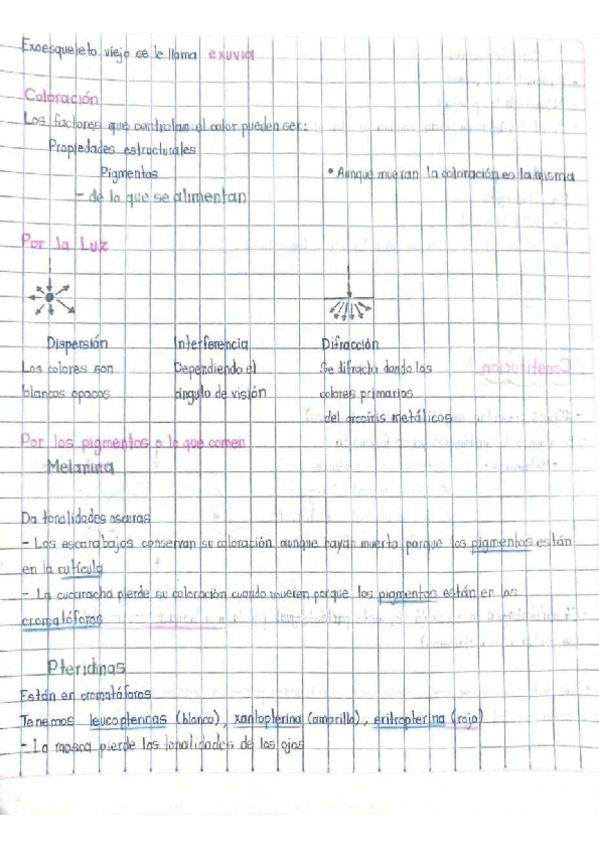 Exoesqueleto viejo se le llama exuvia
Coloración
Los factores que controlan el color pueden ser:
Propiedades estructurales
Pigmentos
• Aunque mueran la coloración es la misma
- de lo que se alimentan
Por la Luz
Dispersión
Los colores son
blancos opacos
Interferencia
Dependiendo el
ángulo de visión
Difracción
Se difracta dando los
colores primarios
del arcoíris metálicos
Por los pigmentos o lo que comen
Melanina
Da tonalidades oscuras
- Los escarabajos conservan su coloración aunque hayan muerto porque los pigmentos están
en la cutícula
- La cucaracha pierde su coloración cuando mueren porque los pigmentos están en los
cromatóforos
Pteridinas
Están en cromatóforos
Tenemos leucoptericas (blanco), xantopterina (amarillo), eritropterina (rojo)
- La mosca pierde las tonalidades de los ojos